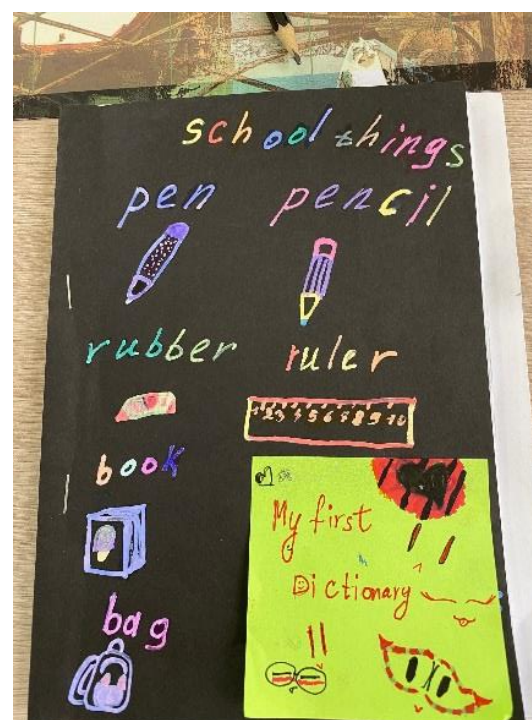 school things
pen pencil
rubber ruler
1 2 3 4 5 6 7 8 9 10
book
My first
Dictionary
bag